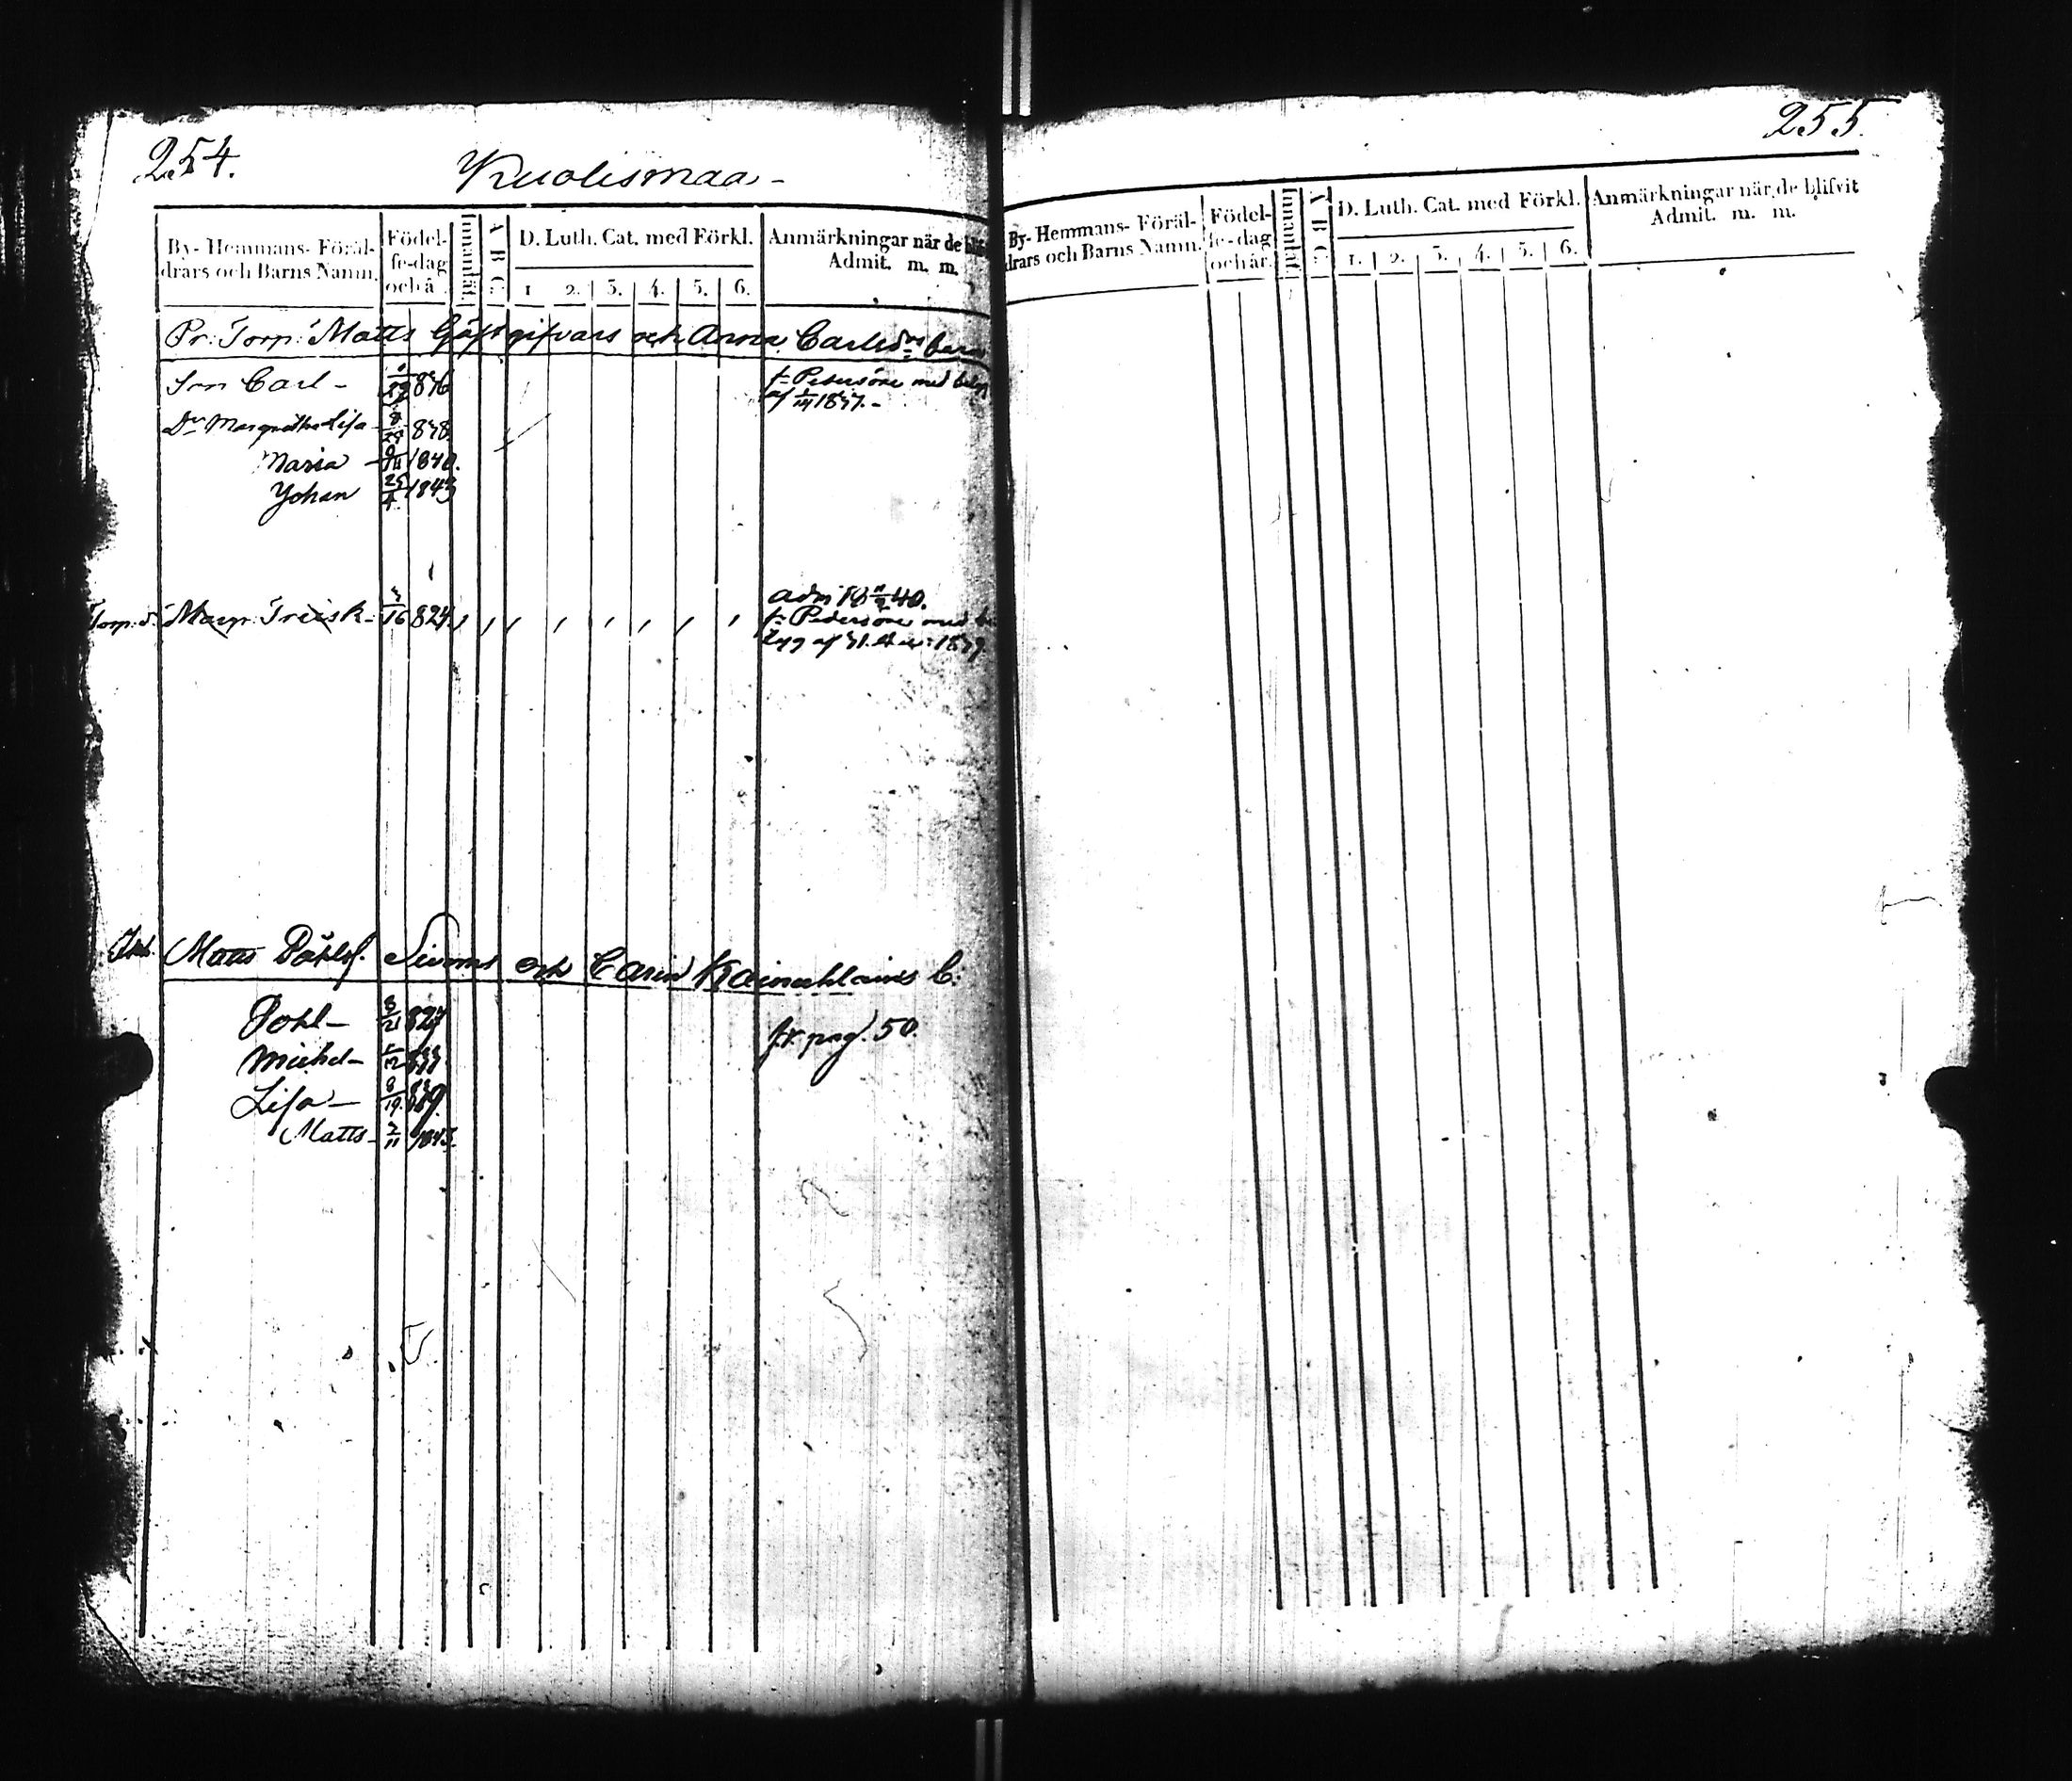 254.
Kuolismaa -
By- Hemmans- Föräl-
drars och Barns Namn.
Födel-
se-dag
och å
Innanlät.
A B C.
D. Luth. Cat. med Förkl.
1 2. 3. 4. 5. 6.
Anmärkningar när de blif
Admit. m. m.
Pr: Torp: Matts Gästgifvars och Anna Carlsdrs barn
Son Carl -
f: Pedersöre med
af 1837. -
Dr Margretha Lisa
Maria - 1840.
Johan 25/4 1843
adm 18 40.
Torp: d: Marg: Triisk - /16 824. , , , , , , , ,
f: Pedersöre med
af
Inh. Matts Påhls. Sivons och Carin Kainulaines b:
Pohl - 8/21 827
fr. pag. 50.
Michel - /12
Lisa - 8/19.
Matts - 2/11 1843.
255.
By- Hemmans- Föräl-
drars och Barns Namn.
Födel-
se-dag
och år.
Innanlät.
A B C.
D. Luth. Cat. med Förkl.
1. 2. 3. 4. 5. 6.
Anmärkningar när de blifvit
Admit. m. m.